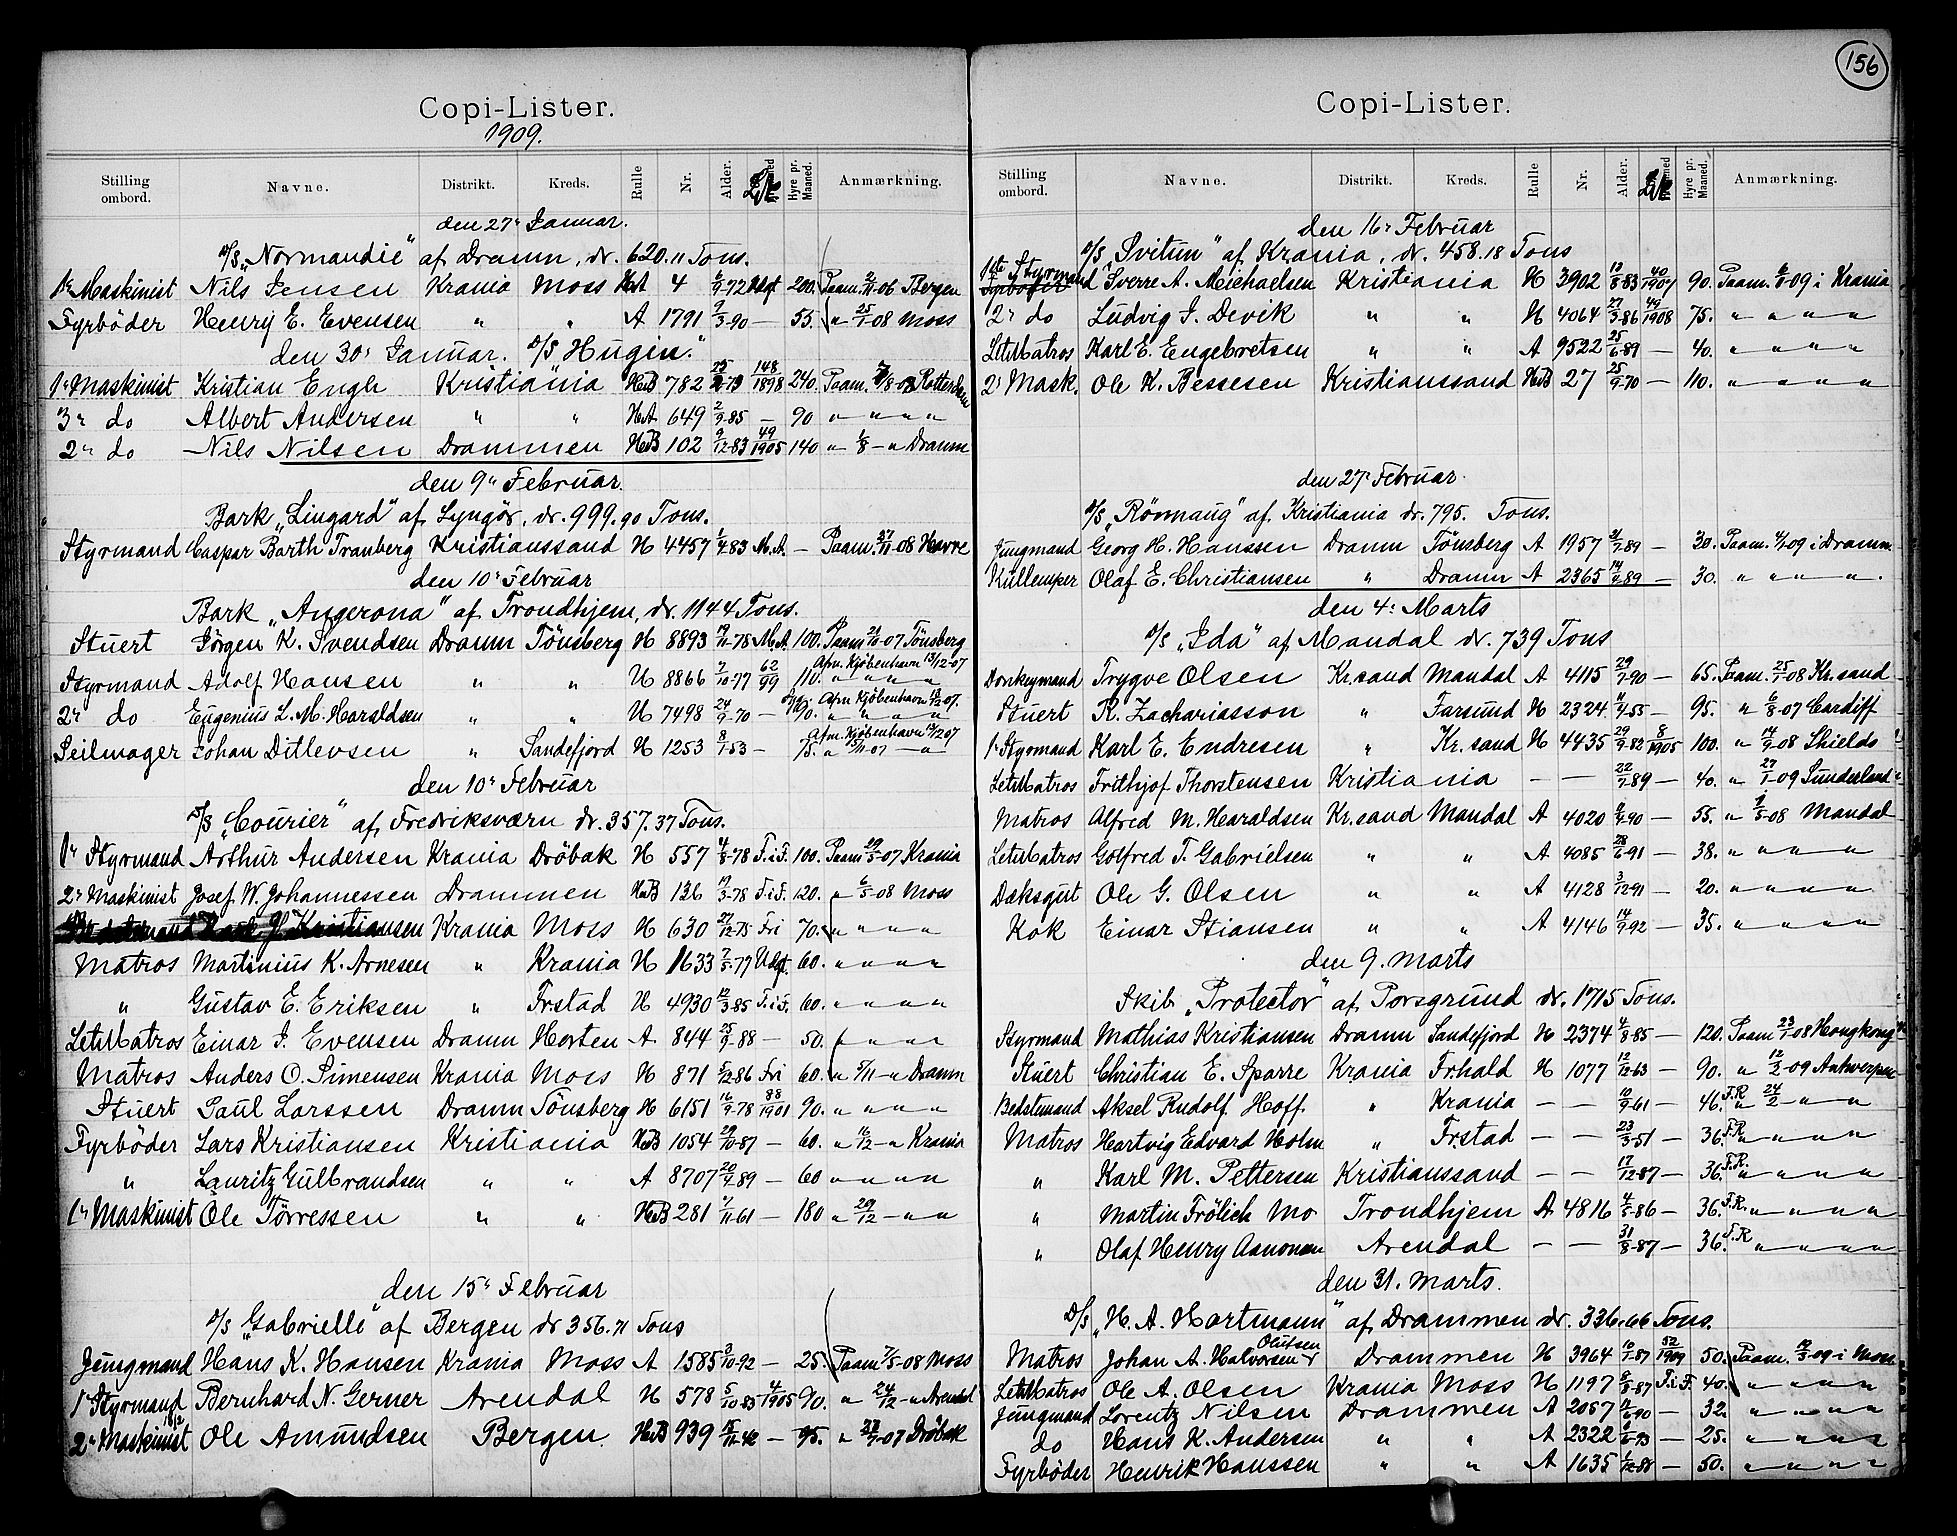 Copi-Lister.
1909.
Stilling ombord. Navne. Distrikt. Kreds. Rulle Nr. Alder. Hyre pr. Maaned. Anmærkning.
den 27' Januar.
D/S „Normandie" af Dramn, dr. 620.11 Tons.
1' Maskinist Nils Jensen Krania Moss 4 6/9-72 Udgt 200. Paam. 2/11-06 Bergen
Fyrböder Henry E. Evensen " " A 1791 2/3-90 — 55. " 25/1-08 Moss
den 30' Januar. D/S „Hugin."
1' Maskinist Kristian Engh Kristiania HB 782 148/1898 240. Paam. Rotterdam
3' do Albert Andersen " " HA 649 2/9-85 — 90 " " " "
2' do Nils Nilsen Drammen HB 102 9/12-83 49/1905 140 " 1/8 — " Dramn
den 9' Februar.
Bark „Lingard" af Lyngör, dr. 999.90 Tons.
Styrmand Caspar Barth Tranberg Kristianssand H 4457 1/4-83 M.A. — Paam. 27/11-08 Havre
den 10' Februar
Bark „Angerona" af Trondhjem, dr. 1144 Tons.
Stuert Jörgen K. Svendsen Dramn Tönsberg H 8893 19/11-78 M.A. 100. Paam. 21/11-07 Tönsberg
Afm. Kjöbenhavn 13/12-07
Styrmand Adolf Hansen " " H 8866 7/10-77 62/99 110. " " " "
Afm. Kjöbenhavn 13/12-07.
2' do Eugenius L. M. Haraldsen " " H 7498 24/9-70 — 90. " " " "
Afm. Kjöbenhavn 13/12 07
Seilmager Johan Ditlevsen " Sandefjord H 1253 8/1-53 — 75. " 15/11-07 — "
den 10' Februar
D/S „Courier" af Fredriksværn dr. 357.37 Tons.
1' Styrmand Arthur Andersen Krania Dröbak H 557 4/8-78 F.i.F. 100. Paam 29/5-07 Krania
2' Maskinist Josef W. Johannessen Drammen HB 136 19/3-78 F.i.F. 120. " 6/5-08 Moss
Kristiansen Krania Moss H 630 27/12-75 Fri 70. " " " "
Matros Martinius K. Arnesen " Krania H 1633 7/5-79 Udgt. 60. " " " "
" Gustav E. Eriksen " Frstad H 4930 12/3-85 F.i.F. 60. " " " "
LetMatros Einar J. Evensen Dramn Horten A. 844 25/9-88 — 50. " " " "
Matros Anders O. Simensen Krania Moss H 871 5/12-86 Fri 60. " 5/11 — " Dramn
Stuert Paul Larssen Dramn Tönsberg H 6151 16/9-78 88/1901 90. " " " "
Fyrböder Lars Kristiansen Kristiania HB 1054 29/10-87 — 60. " 16/12 — " Krania
" Lauritz Gulbrandsen " " A 8707 20/9-89 — 60 " " " "
1' Maskinist Ole Törressen " " HB 281 7/11-61 — 180 " 29/12 — " "
den 15' Februar
D/S „Gabrielle" af Bergen dr 356.71 Tons
Jungmand Hans K. Hansen Krania Moss A 1585 3/10-92 — 25. Paam 7/5-08 Moss
1' Styrmand Bernhard N. Gerner Arendal H 578 5/10-83 4/1905 90. " 24/12 — " Arendal
2' Maskinist Ole Amundsen Bergen. HB 939 15/11-42 — 95. " 27/7-07 Dröbak
156
Copi-Lister.
Stilling ombord. Navne. Distrikt. Kreds. Rulle Nr. Alder. Hyre pr. Maaned. Anmærkning.
den 16' Februar
D/S „Svitun" af Krania, dr. 458.18 Tons
1ste Styrmand Sverre A. Michaelsen Kristiania H 3902 10/8-83 40/1907 90. Paam. 6/1-09 i Krania
2' do Ludvig J. Devik " " H 4064 27/3-86 49/1908 75. " " " "
LetMatros Karl E. Engebretsen " " A 9522 25/6-89 — 40. " " " "
2' Mask. Ole K. Bessesen Kristianssand HB 27 25/9-70 — 110. " " " "
den 27' Februar.
D/S „Rönnaug" af Kristiania dr. 795. Tons.
Jungmand Georg H. Hanssen Dramn Tönsberg A 1957 31/7-89 — 30. Paam. 4/1-09 i Dramn.
Kullemper Olaf E. Christiansen " Dramn A 2365 14/9-89 — 30. " " " ".
den 4: Marts
D/S „Ida" af Mandal dr. 739 Tons
Donkeymand Trygve Olsen Kr.sand Mandal A 4115 29/7-90 — 65. Paam. 25/1-08 Kr.sand
Stuert R. Zachariasson " Farsund H 2324 4/4-55 — 95. " 6/8-07 Cardiff
1' Styrmand Karl E. Endresen " Kr.sand H 4435 29/9-82 8/1905 100. " 14/9-08 Shields
LetMatros Frithjof Thorstensen Kristiania — — 22/7-89 — 40. " 27/1-09 Sunderland
Matros Alfred M. Haraldsen Kr.sand Mandal A 4020 4/4-90 — 55. " 9/5-08 Mandal
LetMatros Golfred T. Gabrielsen " " A 4085 28/6-91 — 38. " " " "
Daksgut Ole G. Olsen " " A 4128 3/12-91 — 20. " " " "
Kok Einar Stiansen " " A 4146 14/9-92 — 35. " " " "
den 9. Marts
Skib „Protector" af Porsgrund dr. 1715 Tons.
Styrmand Mathias Kristiansen Dramn Sandefjord H 2374 4/8-85 — 120. Paam 23/1-08 Hongkong
Stuert Christian E. Sparre Krania Frhald H 1077 12/12-63 — 90. " 12/2-09 Antwerpen
Bedstemand Aksel Rudolf Hoff " Krania — — 10/9-61 — 46. F.R. " 24/2 — " "
Matros Hartvig Edvard Holm " Frstad — — 23/3-51 — 36. F.R. " " " "
" Karl M. Pettersen Kristianssand — — 17/12-87 — 36. F.R. " " " "
" Martin Frölich Mo Trondhjem A 4816 4/5-86 — 36. F.R. " " " "
" Olaf Henry Aanonsen Arendal — — 31/8-87 — 36. F.R " " " "
den 31. Marts.
D/S „H. A. Hartmann" af Drammen dr. 336.66 Tons.
Matros Johan A. Halvorsen Drammen H 3964 10/1-87 52/1909 50. Paam. 12/3-09 i Moss
LetMatros Ole A. Olsen Krania Moss H 1197 2/8-87 F.i.F. 40. " " " "
Jungmand Lorentz Nilsen Drammen A 2067 12/6-90 — 32. " " " "
do Hans K. Andersen " " A 2322 1/6-93 — 25. " " " "
Fyrböder Henrik Hanssen " " A 1635 1/12-88 — 50. " " " "